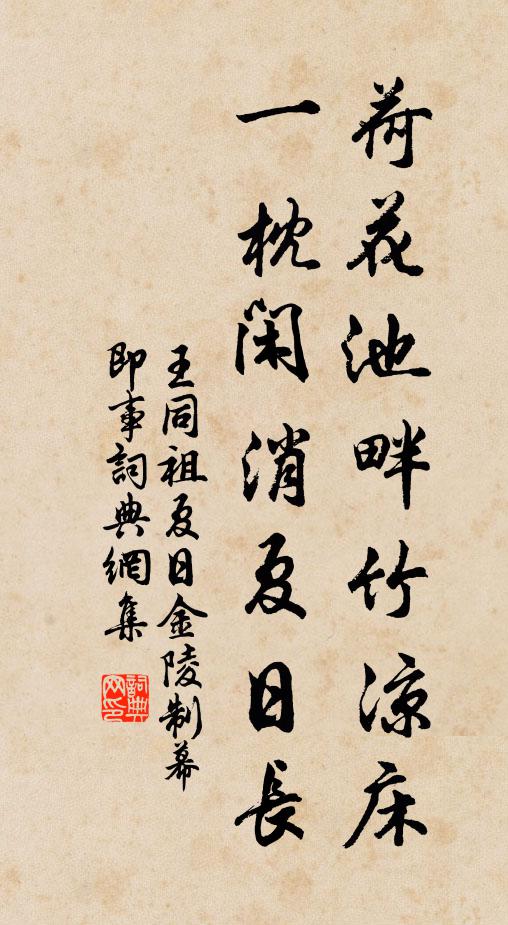 荷花池畔竹凉床
一枕闲消夏日長
王同祖夏日金陵制幕
即事詞典網集
詞典
网印